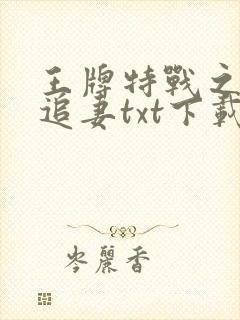 王牌特戰之
追妻txt下載
岑麗香